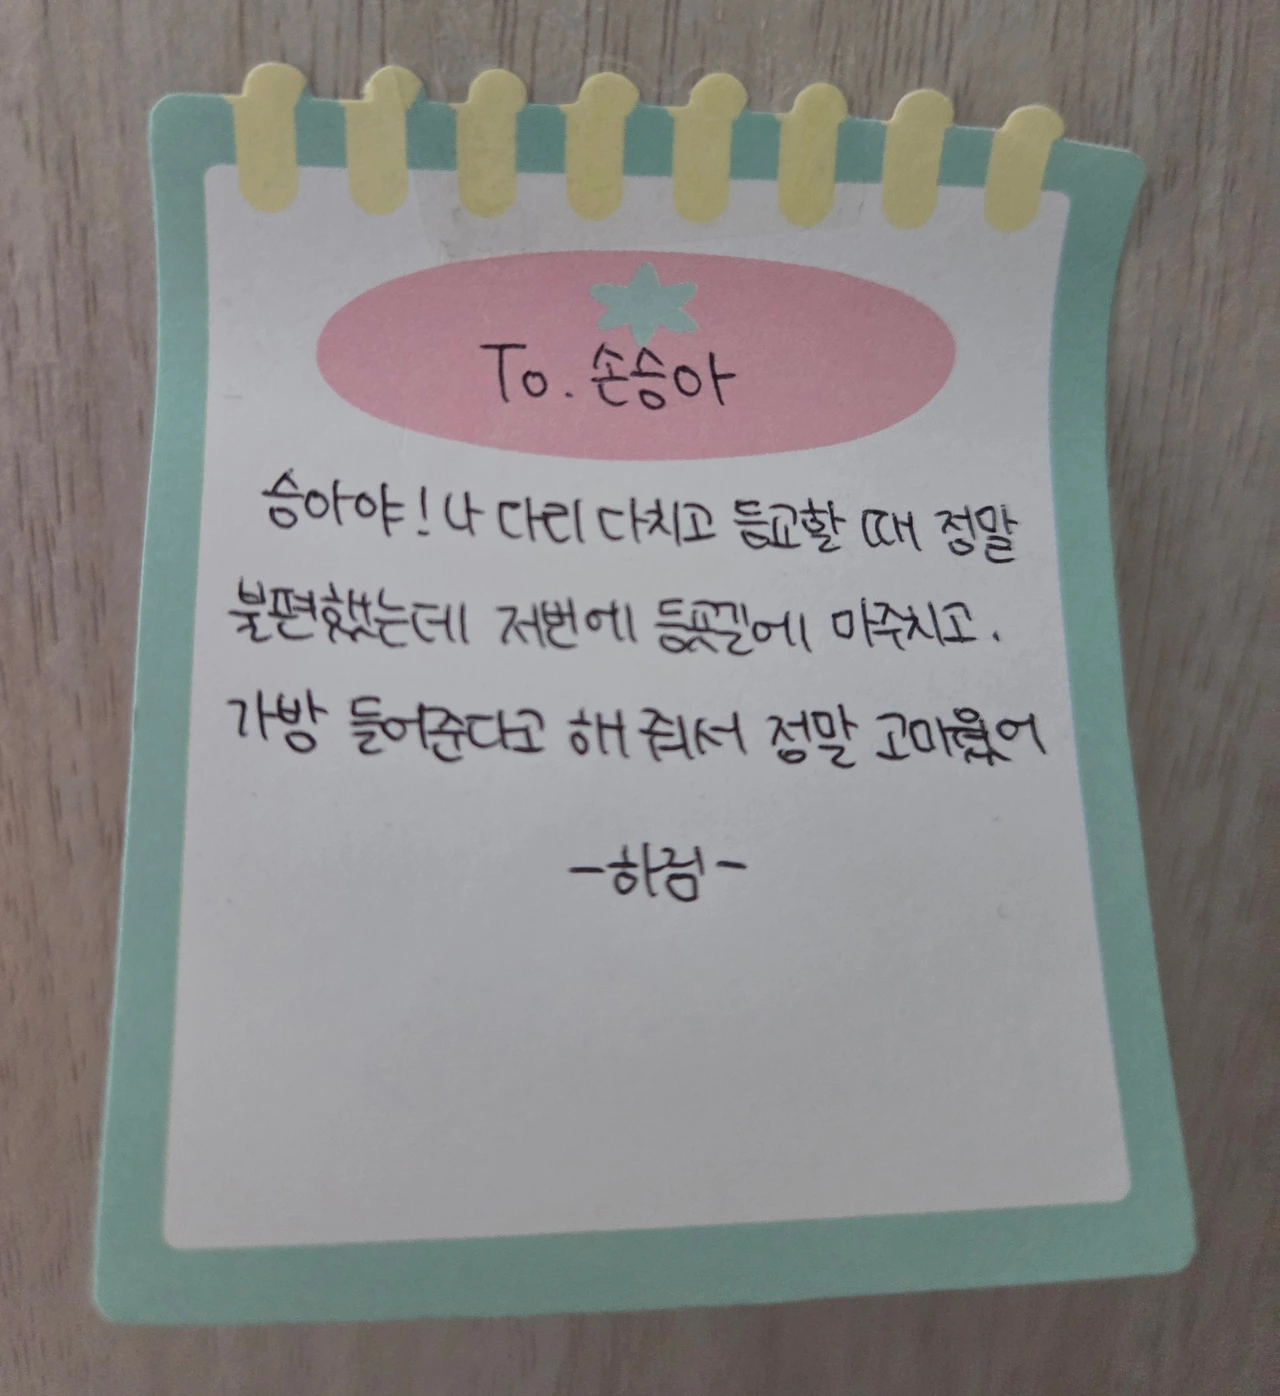 To. 손승아
승아야! 나 다리 다치고 등교할 때 정말
불편했는데 저번에 등굣길에 마주치고.
가방 들어준다고 해줘서 정말 고마웠어
-하점-